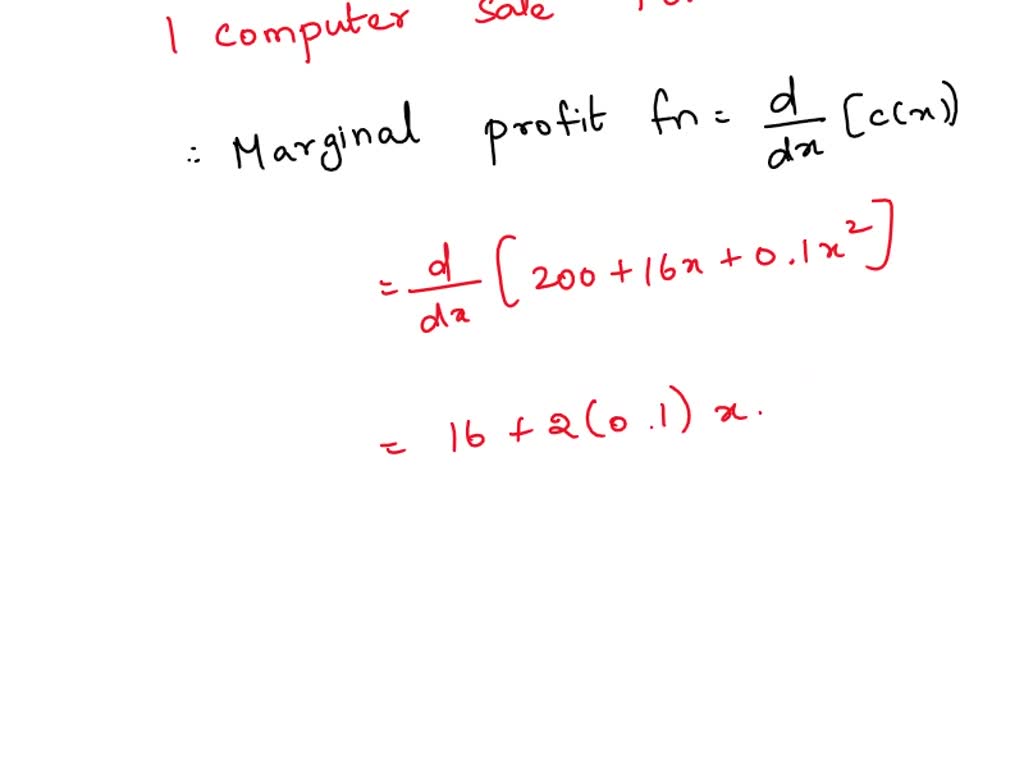 1 computer sale
∴ Marginal profit fn = d/dx [c(x)]
= d/dx [200 + 16x + 0.1x²]
= 16 + 2(0.1) x.